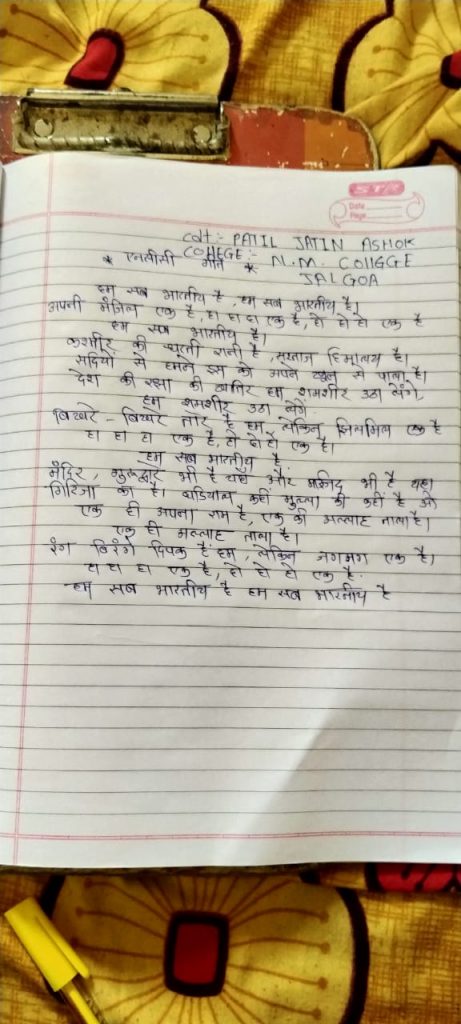 STR
Date
Page
cdt:- PATIL JATIN ASHOK
COllEGE:- N.M. COllGGE
JALGOA
* एनसीसी गीत *
हम सब भारतीय है, हम सब भारतीय है।
अपनी मंजिल एक है, हा हा हा एक है, हो हो हो एक है
हम सब भारतीय है।
कश्मीर की धरती रानी है, सरताज हिमालय है।
सदियों से हमने इस को अपने खून से पाला है।
देश की रक्षा की खातिर हम शमशीर उठा लेंगे,
हम शमशीर उठा लेंगे.
बिखरे - बिखरे तारे है हम, लेकिन झिलमिल एक है
हा हा हा एक है, हो हो हो एक है।
हम सब भारतीय है.
मंदिर, गुरुद्वारे भी है यहाँ और मस्जिद भी है यहा
गिरिजा का है। घडियाल कही मुल्ला की कहीं है
एक ही अपना राम है, एक ही अल्लाह ताला है।
एक ही अल्लाह ताला है।
रंग बिरंगे दिपक है हम, लेकिन जगमग एक है।
हा हा हा एक है, हो हो हो एक है.
हम सब भारतीय है हम सब भारतीय है